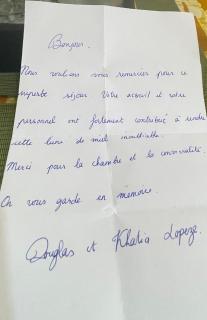 Bonjour.
Nous voulions vous remercier pour ce
superbe séjour. Votre accueil et votre
personnel ont fortement contribué à rendre
cette lune de miel inoubliable.
Merci pour la chambre et la convivialité.
On vous garde en mémoire.
Douglas et Khalia Lopeze.